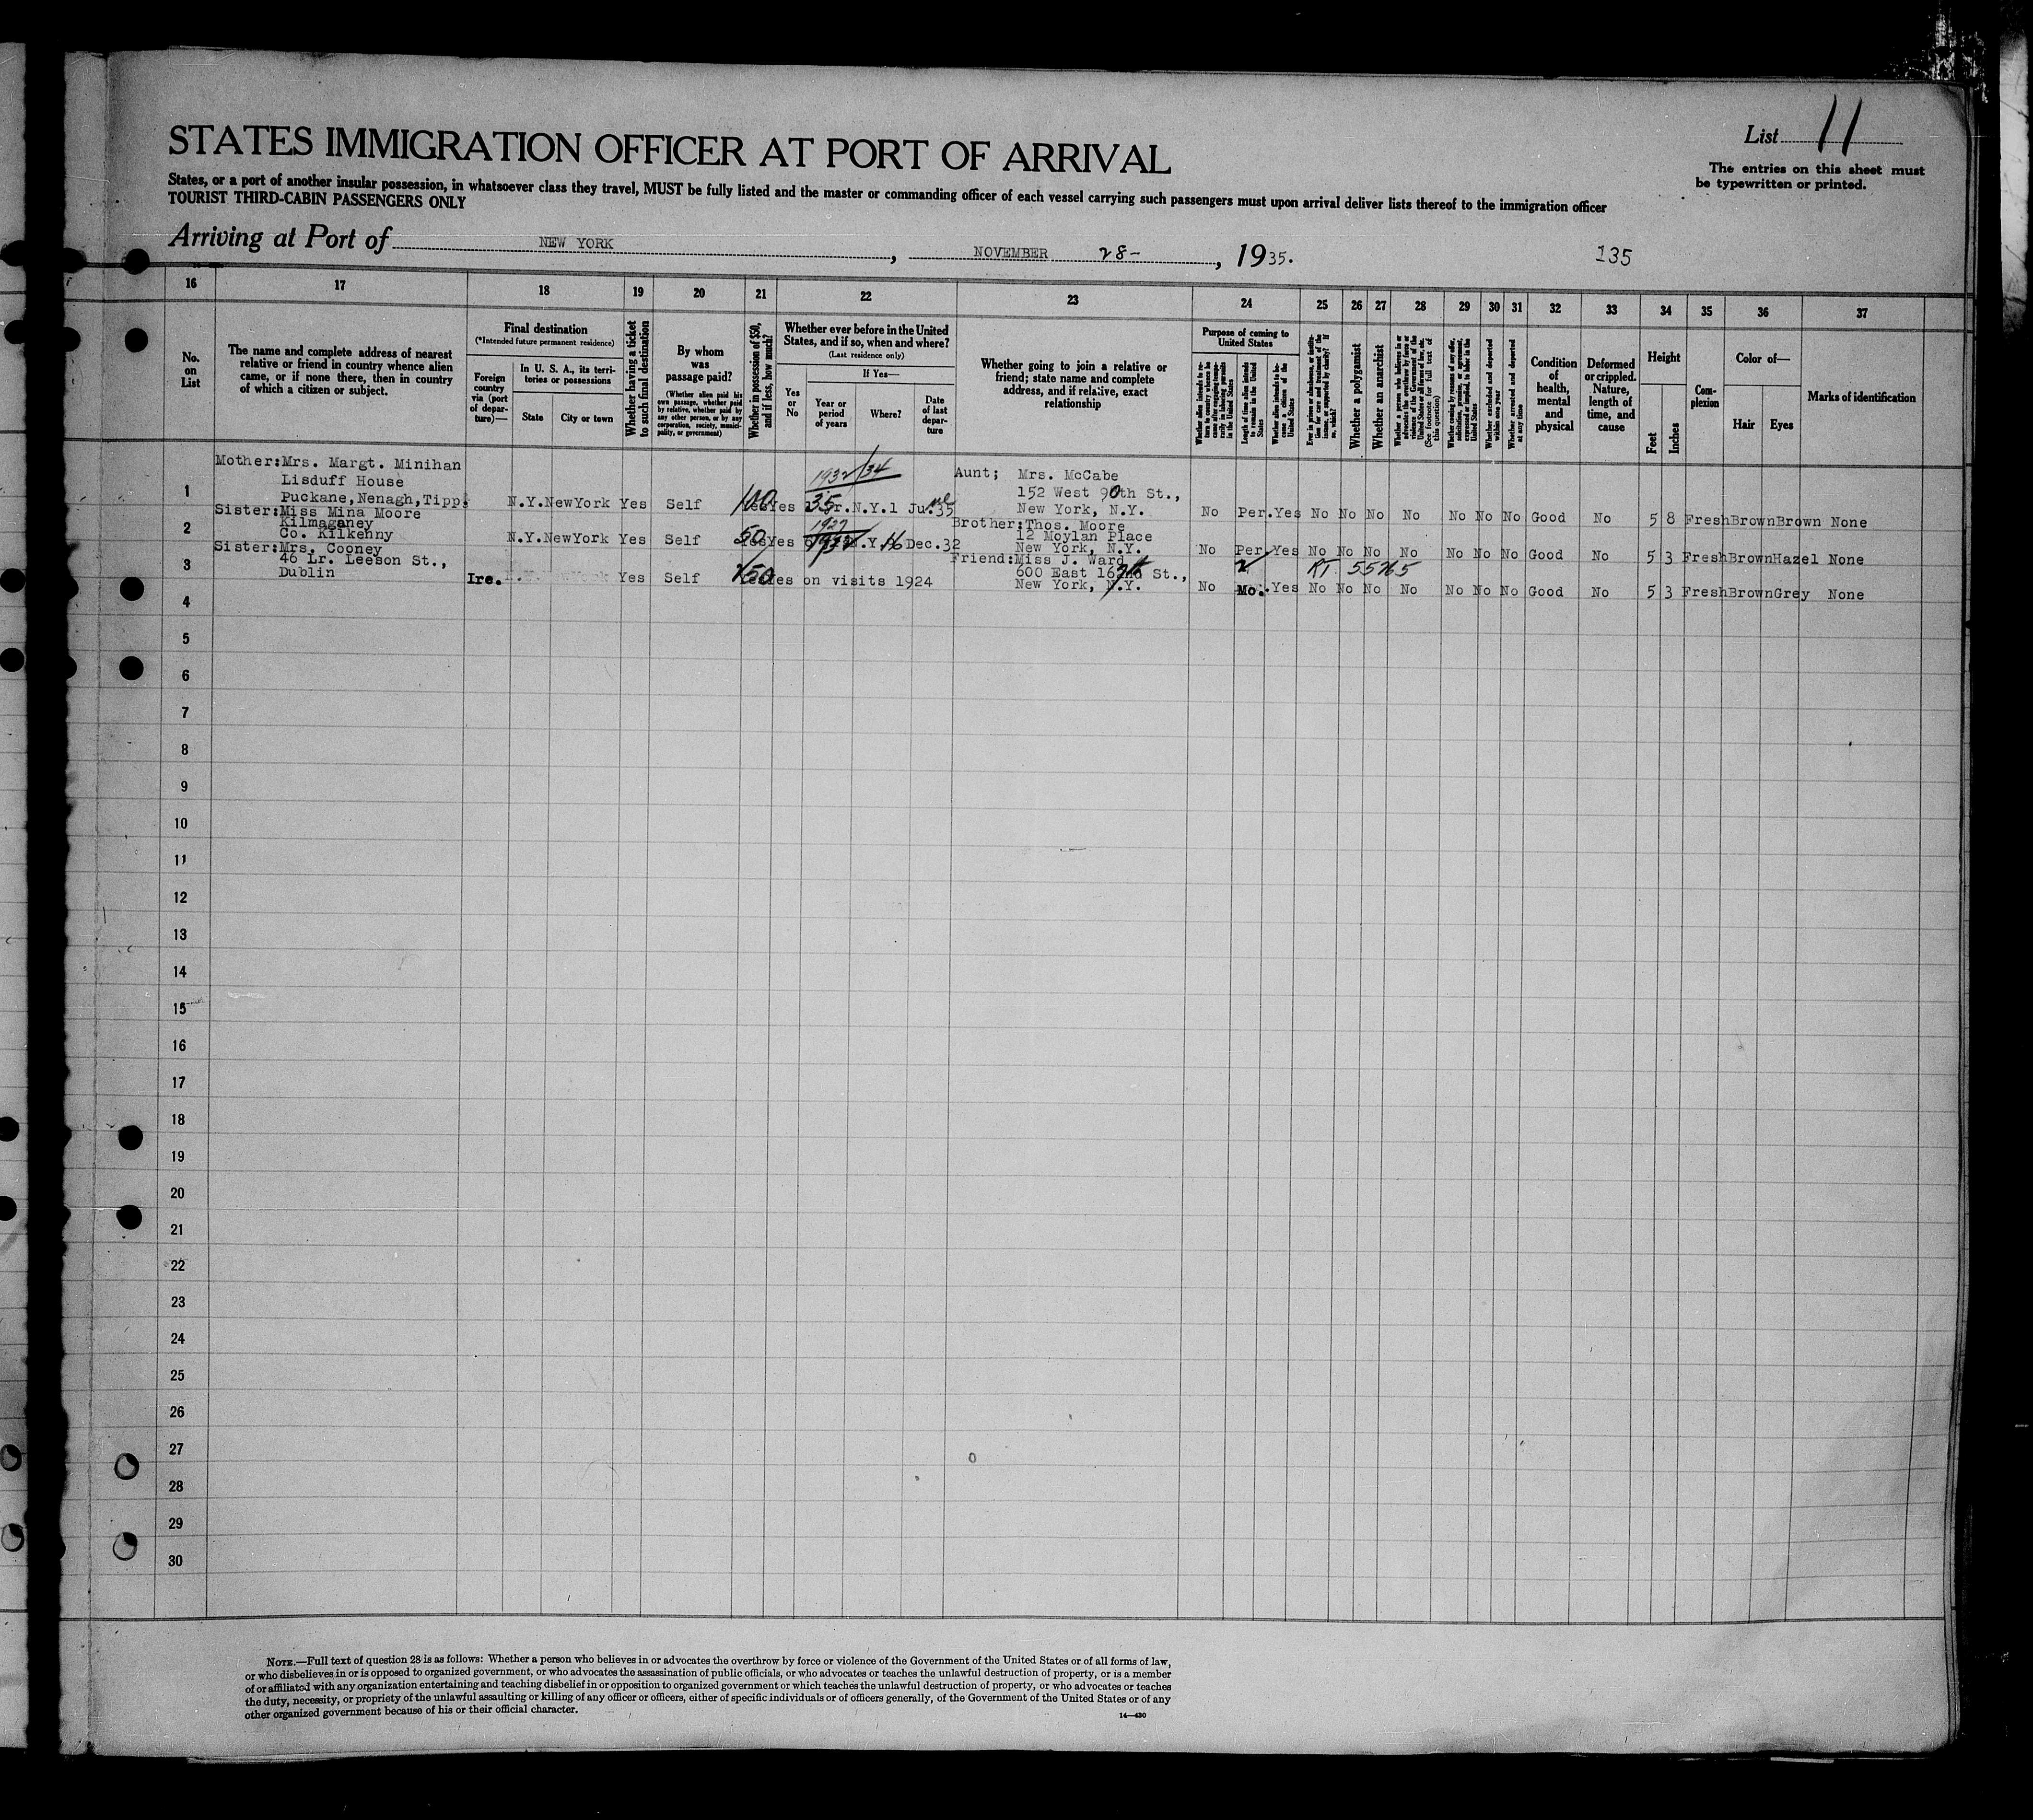 List 11
The entries on this sheet must
be typewritten or printed.
STATES IMMIGRATION OFFICER AT PORT OF ARRIVAL
States, or a port of another insular possession, in whatsoever class they travel, MUST be fully listed and the master or commanding officer of each vessel carrying such passengers must upon arrival deliver lists thereof to the immigration officer
TOURIST THIRD-CABIN PASSENGERS ONLY
Arriving at Port of NEW YORK, NOVEMBER 28-, 1935. 135
16 17 18 19 20 21 22 23 24 25 26 27 28 29 30 31 32 33 34 35 36 37
No.
on
List
The name and complete address of nearest
relative or friend in country whence alien
came, or if none there, then in country
of which a citizen or subject.
Final destination
(*Intended future permanent residence)
Foreign
country
via (port
of depar-
ture)—
In U. S. A., its terri-
tories or possessions
State City or town
Whether having a ticket
to such final destination
By whom
was
passage paid?
(Whether alien paid his
own passage, whether paid
by relative, whether paid by
any other person, or by any
corporation, society, munici-
pality, or government)
Whether in possession of $50,
and if less, how much?
Whether ever before in the United
States, and if so, when and where?
(Last residence only)
Yes
or
No
If Yes—
Year or
period
of years
Where?
Date
of last
depar-
ture
Whether going to join a relative or
friend; state name and complete
address, and if relative, exact
relationship
Purpose of coming to
United States
Length of time alien intends
to remain in the United
States
Whether alien intends to be-
come a citizen of the
United States
Whether a polygamist
Whether an anarchist
Whether excluded and deported
within one year
Whether arrested and deported
at any time
Condition
of
health,
mental
and
physical
Deformed
or crippled.
Nature,
length of
time, and
cause
Height
Feet
Inches
Com-
plexion
Color of—
Hair Eyes
Marks of identification
1
Mother: Mrs. Margt. Minihan
Lisduff House
Puckane, Nenagh, Tipp.
N.Y. NewYork Yes Self 100 Yes 1932/34 35 N.Y. 1 Ju. 35
Aunt; Mrs. McCabe
152 West 90th St.,
New York, N.Y.
No Per. Yes No No No No No No No Good No 5 8 Fresh Brown Brown None
2
Sister: Miss Mina Moore
Kilmaganey
Co. Kilkenny
N.Y. NewYork Yes Self 50 Yes 1927 N.Y. 16 Dec. 32
Brother: Thos. Moore
12 Moylan Place
New York, N.Y.
No Per Yes No No No No No No No Good No 5 3 Fresh Brown Hazel None
3
Sister: Mrs. Cooney
46 Lr. Leeson St.,
Dublin
Ire. Yes Self 50 Yes on visits 1924
Friend: Miss J. Ward
600 East 162nd St.,
New York, N.Y.
RT 55765
No Mo. Yes No No No No No No No Good No 5 3 Fresh Brown Grey None
4
5
6
7
8
9
10
11
12
13
14
15
16
17
18
19
20
21
22
23
24
25
26
27
28
29
30
NOTE.—Full text of question 28 is as follows: Whether a person who believes in or advocates the overthrow by force or violence of the Government of the United States or of all forms of law,
or who disbelieves in or is opposed to organized government, or who advocates the assassination of public officials, or who advocates or teaches the unlawful destruction of property, or is a member
of or affiliated with any organization entertaining and teaching disbelief in or opposition to organized government or which teaches the unlawful destruction of property, or who advocates or teaches
the duty, necessity, or propriety of the unlawful assaulting or killing of any officer or officers, either of specific individuals or of officers generally, of the Government of the United States or of any
other organized government because of his or their official character.
14—430